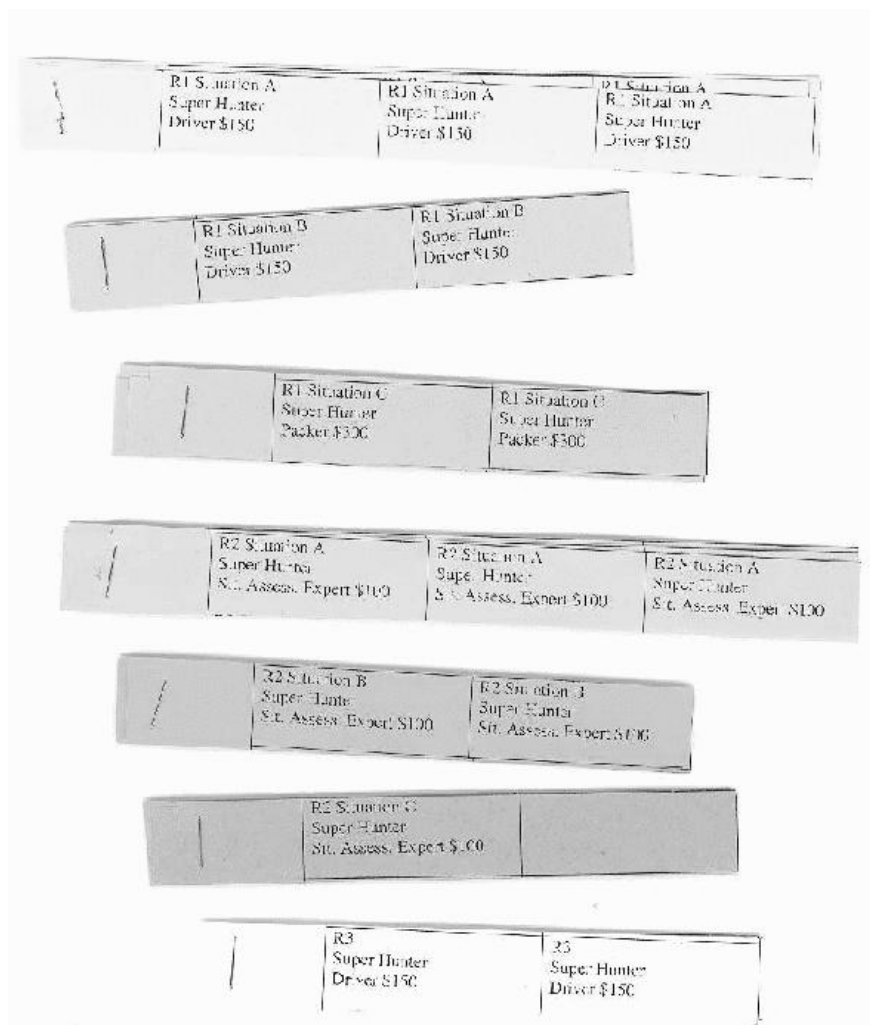 R1 Situation A
Super Hunter
Driver $150
R1 Situation A
Super Hunter
Driver $150
R1 Situation A
R1 Situation A
Super Hunter
Driver $150
R1 Situation B
Super Hunter
Driver $150
R1 Situation B
Super Hunter
Driver $150
R1 Situation C
Super Hunter
Packer $300
R1 Situation C
Super Hunter
Packer $300
R2 Situation A
Super Hunter
Sit. Assess. Expert $100
R2 Situation A
Super Hunter
Sit. Assess. Expert $100
R2 Situation A
Super Hunter
Sit. Assess. Expert $100
R2 Situation B
Super Hunter
Sit. Assess. Expert $100
R2 Situation B
Super Hunter
Sit. Assess. Expert $100
R2 Situation C
Super Hunter
Sit. Assess. Expert $100
R3
Super Hunter
Driver $150
R3
Super Hunter
Driver $150